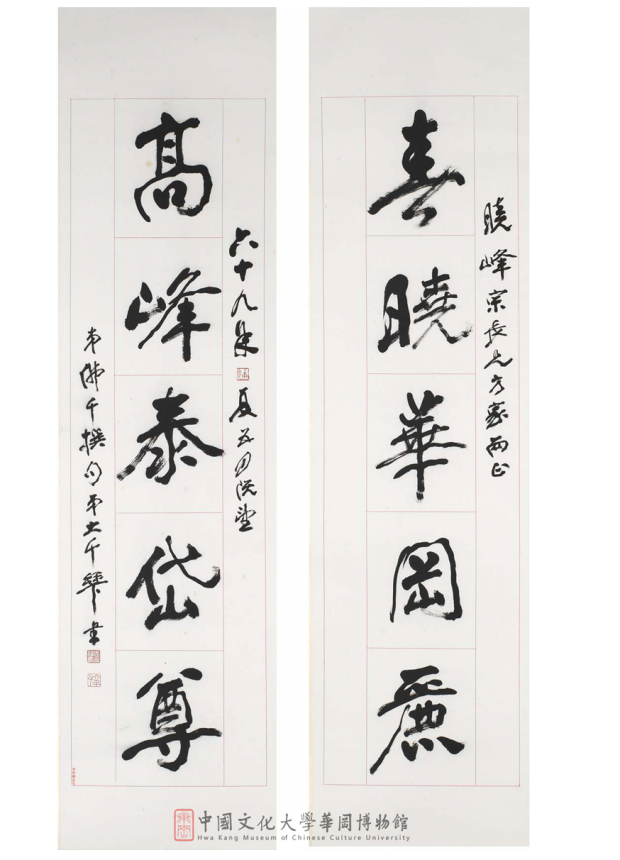 曉峰宗長兄方家兩正
春曉華岡麗
六十九年
夏五月既望
高峰泰岱尊
弟佛千撰句弟大千爰書
中國文化大學華岡博物館
Hwa Kang Museum of Chinese Culture University